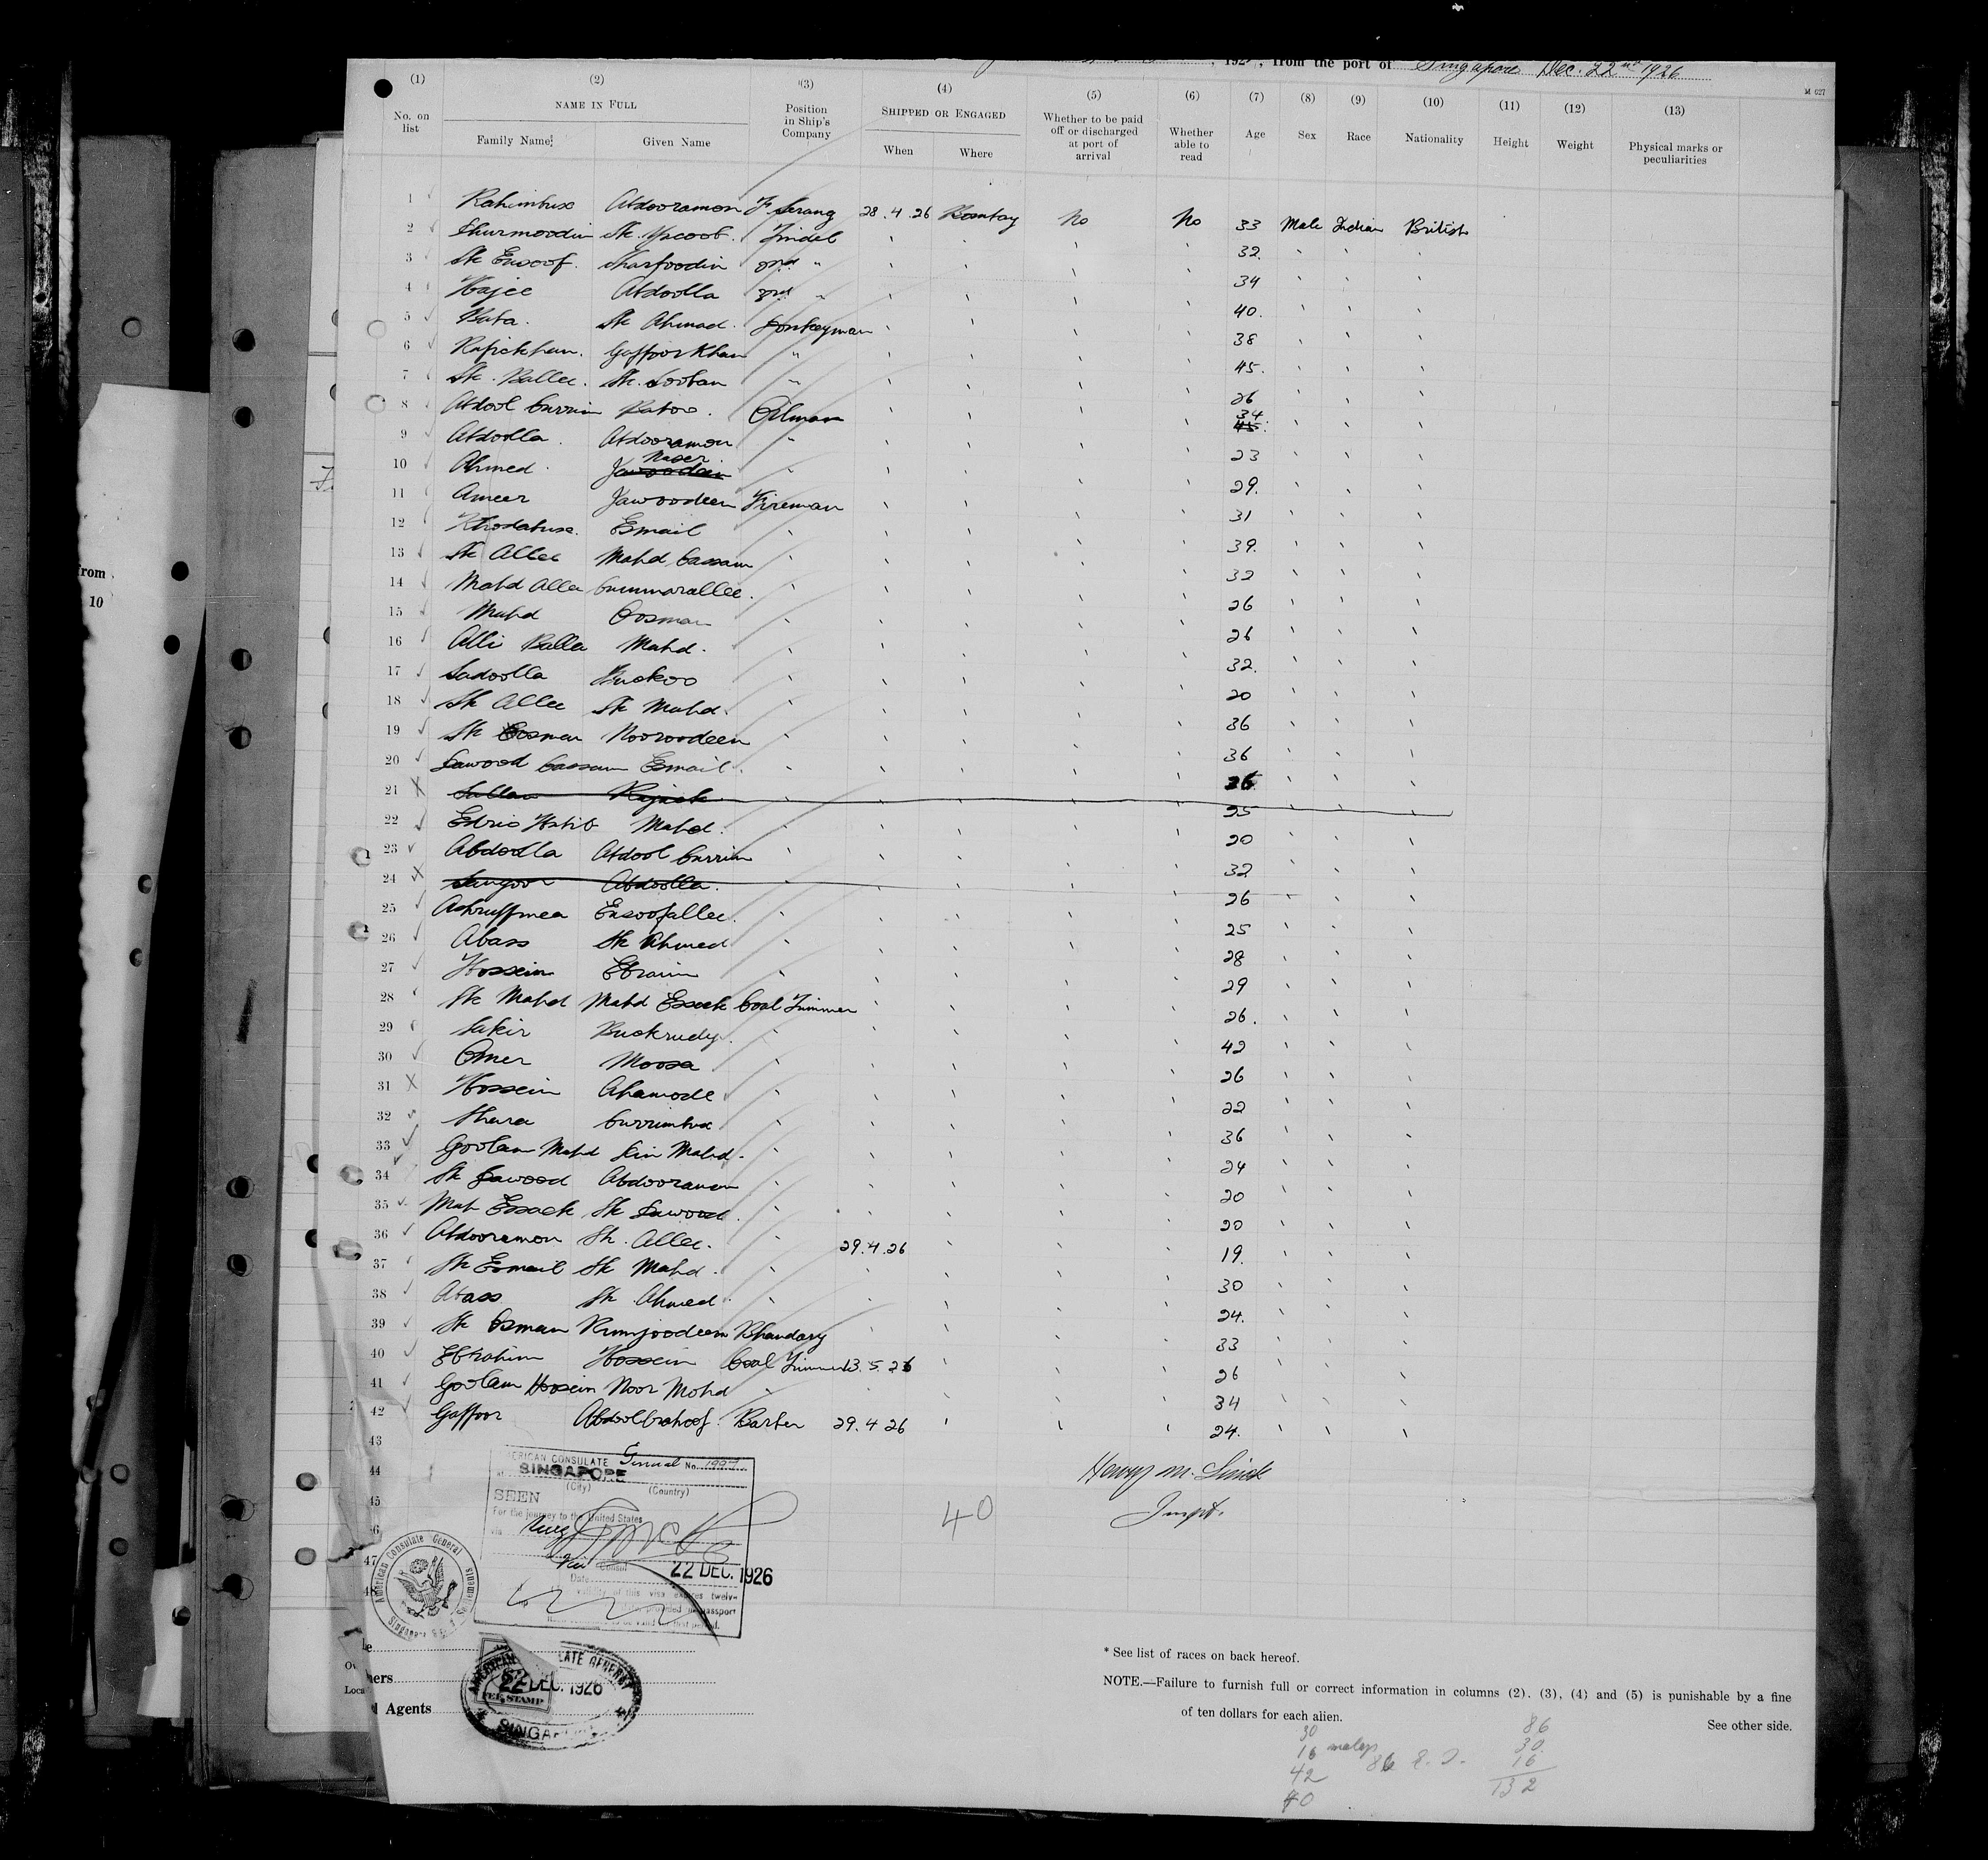 , 192 , from the port of Singapore Dec. 22nd 1926
M 627
(1) (2) (3) (4) (5) (6) (7) (8) (9) (10) (11) (12) (13)
No. on list NAME IN FULL Position in Ship's Company SHIPPED OR ENGAGED Whether to be paid off or discharged at port of arrival Whether able to read Age Sex Race Nationality Height Weight Physical marks or peculiarities
Family Name Given Name When Where
1 Rahimbux Abdooramon F Serang 28.4.26 Bombay No No 33 Male Indian British
2 Shurmoodin Sk. Yacoob. Tindel 32.
3 Sk Esoof. Sharfoodin 2nd " 34
4 Hajee Abdoolla 3rd " 40.
5 Baba. Sk Ahmad. Donkeyman 38
6 Rafickhan. Gaffoor Khan " 45.
7 Sk. Ballee. Sk. Sooban " 26
8 Abdool Currim Baboo. Oilman 34 45
9 Abdolla. Abdooramon " 23
10 Ahmed. Naser Jawoodeen 29.
11 Ameer Jawoodeen Fireman 31
12 Khodabux. Esmail 39.
13 Sk Allee Mahd Cassam 32
14 Mahd Alla Cummorallee. 26
15 Mahd Oosman 26
16 Alli Balla Mahd. 32.
17 Sadoolla Buckoo 20
18 Sk Allee Sk Mahd. 36
19 Sk Eosman Nooroodeen 36
20 Dawood Cassam Esmail. 36
21 Sullan Rajack 25
22 Edris Habib Mahd. 20
23 Abdoolla Abdool Currim 32
24 Sangoor Abdoolla. 26
25 Ashruffmea Ensoofallee. 25
26 Abass Sk Ahmed 28
27 Hossein Ebraim 29
28 Sk Mahd Mahd Essack Coal Trimmer 26.
29 Sakir Buckrudy. 42
30 Omer Moosa 26
31 Hossein Ahamode 22
32 Shera Currimbux 36
33 Goolam Mahd Din Mahd. 24
34 Sk Dawood Abdooramon 20
35 Mah Essack Sk Dawood. 20
36 Abdooramon Sk. Allee. 29.4.26 19.
37 Sk Esmail Sk Mahd. 30
38 Abass Sk Ahmed. 24.
39 Sk Osman Rumjoodeen Bhandary 33
40 Ebrahim Hossein Coal Trimmer 13.5.26 26
41 Goolam Hosein Noor Mohd 34
42 Gaffoor Abdool Grahoof. Barber 29.4.26 24.
43
44
45
46
47
48
AMERICAN CONSULATE General No.
at SINGAPORE
(City) (Country)
SEEN
For the journey to the United States
via
Consul
Date 22 DEC. 1926
validity of this visa expires twelve
provided passport
to be valid for that period.
American Consulate General
Singapore
Henry M. Sinck
Inspt.
40
Owners
Local Agents
AMERICAN CONSULATE GENERAL
22 DEC. 1926
FEE STAMP
SINGAPORE
* See list of races on back hereof.
NOTE.—Failure to furnish full or correct information in columns (2), (3), (4) and (5) is punishable by a fine
of ten dollars for each alien.
See other side.
30
16 malays
42
40
86 E. I.
86
30
16
132
from
10